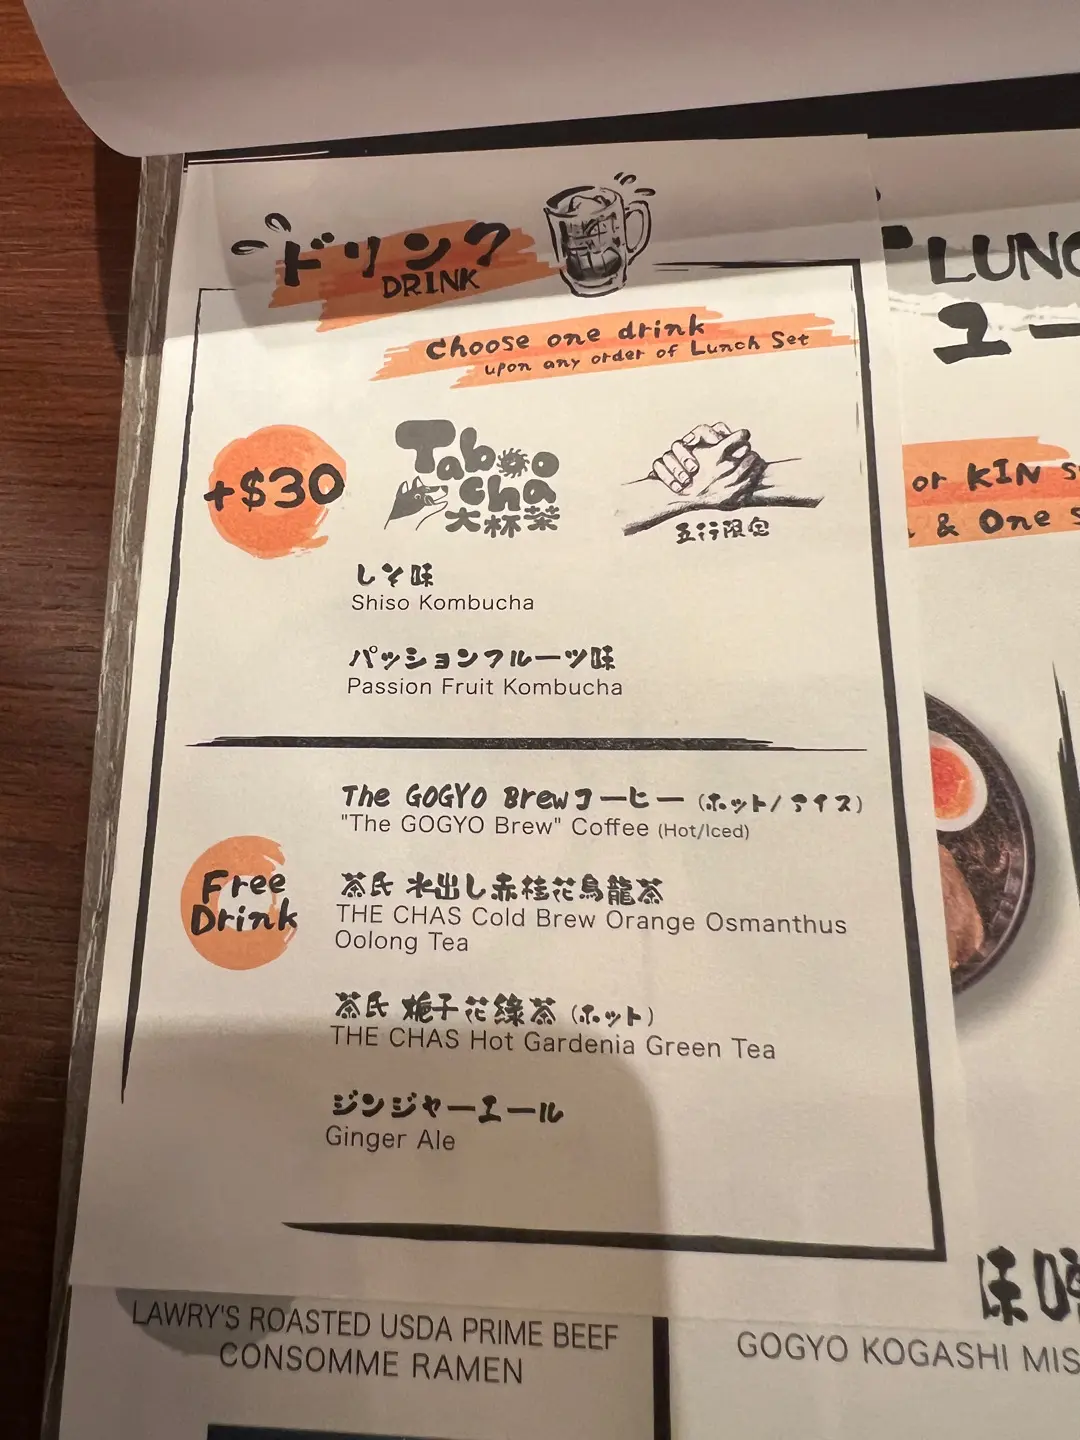 ドリンク
DRINK
Choose one drink
upon any order of Lunch Set
+$30
Taboo
cha
大杯茶
五行限定
しそ味
Shiso Kombucha
パッションフルーツ味
Passion Fruit Kombucha
Free
Drink
The GOGYO Brewコーヒー (ホット/アイス)
"The GOGYO Brew" Coffee (Hot/Iced)
茶氏 水出し赤桂花烏龍茶
THE CHAS Cold Brew Orange Osmanthus
Oolong Tea
茶氏 梔子花綠茶 (ホット)
THE CHAS Hot Gardenia Green Tea
ジンジャーエール
Ginger Ale
LUNC
ユー
or KIN s
& One s
LAWRY'S ROASTED USDA PRIME BEEF
CONSOMME RAMEN
味噌
GOGYO KOGASHI MIS